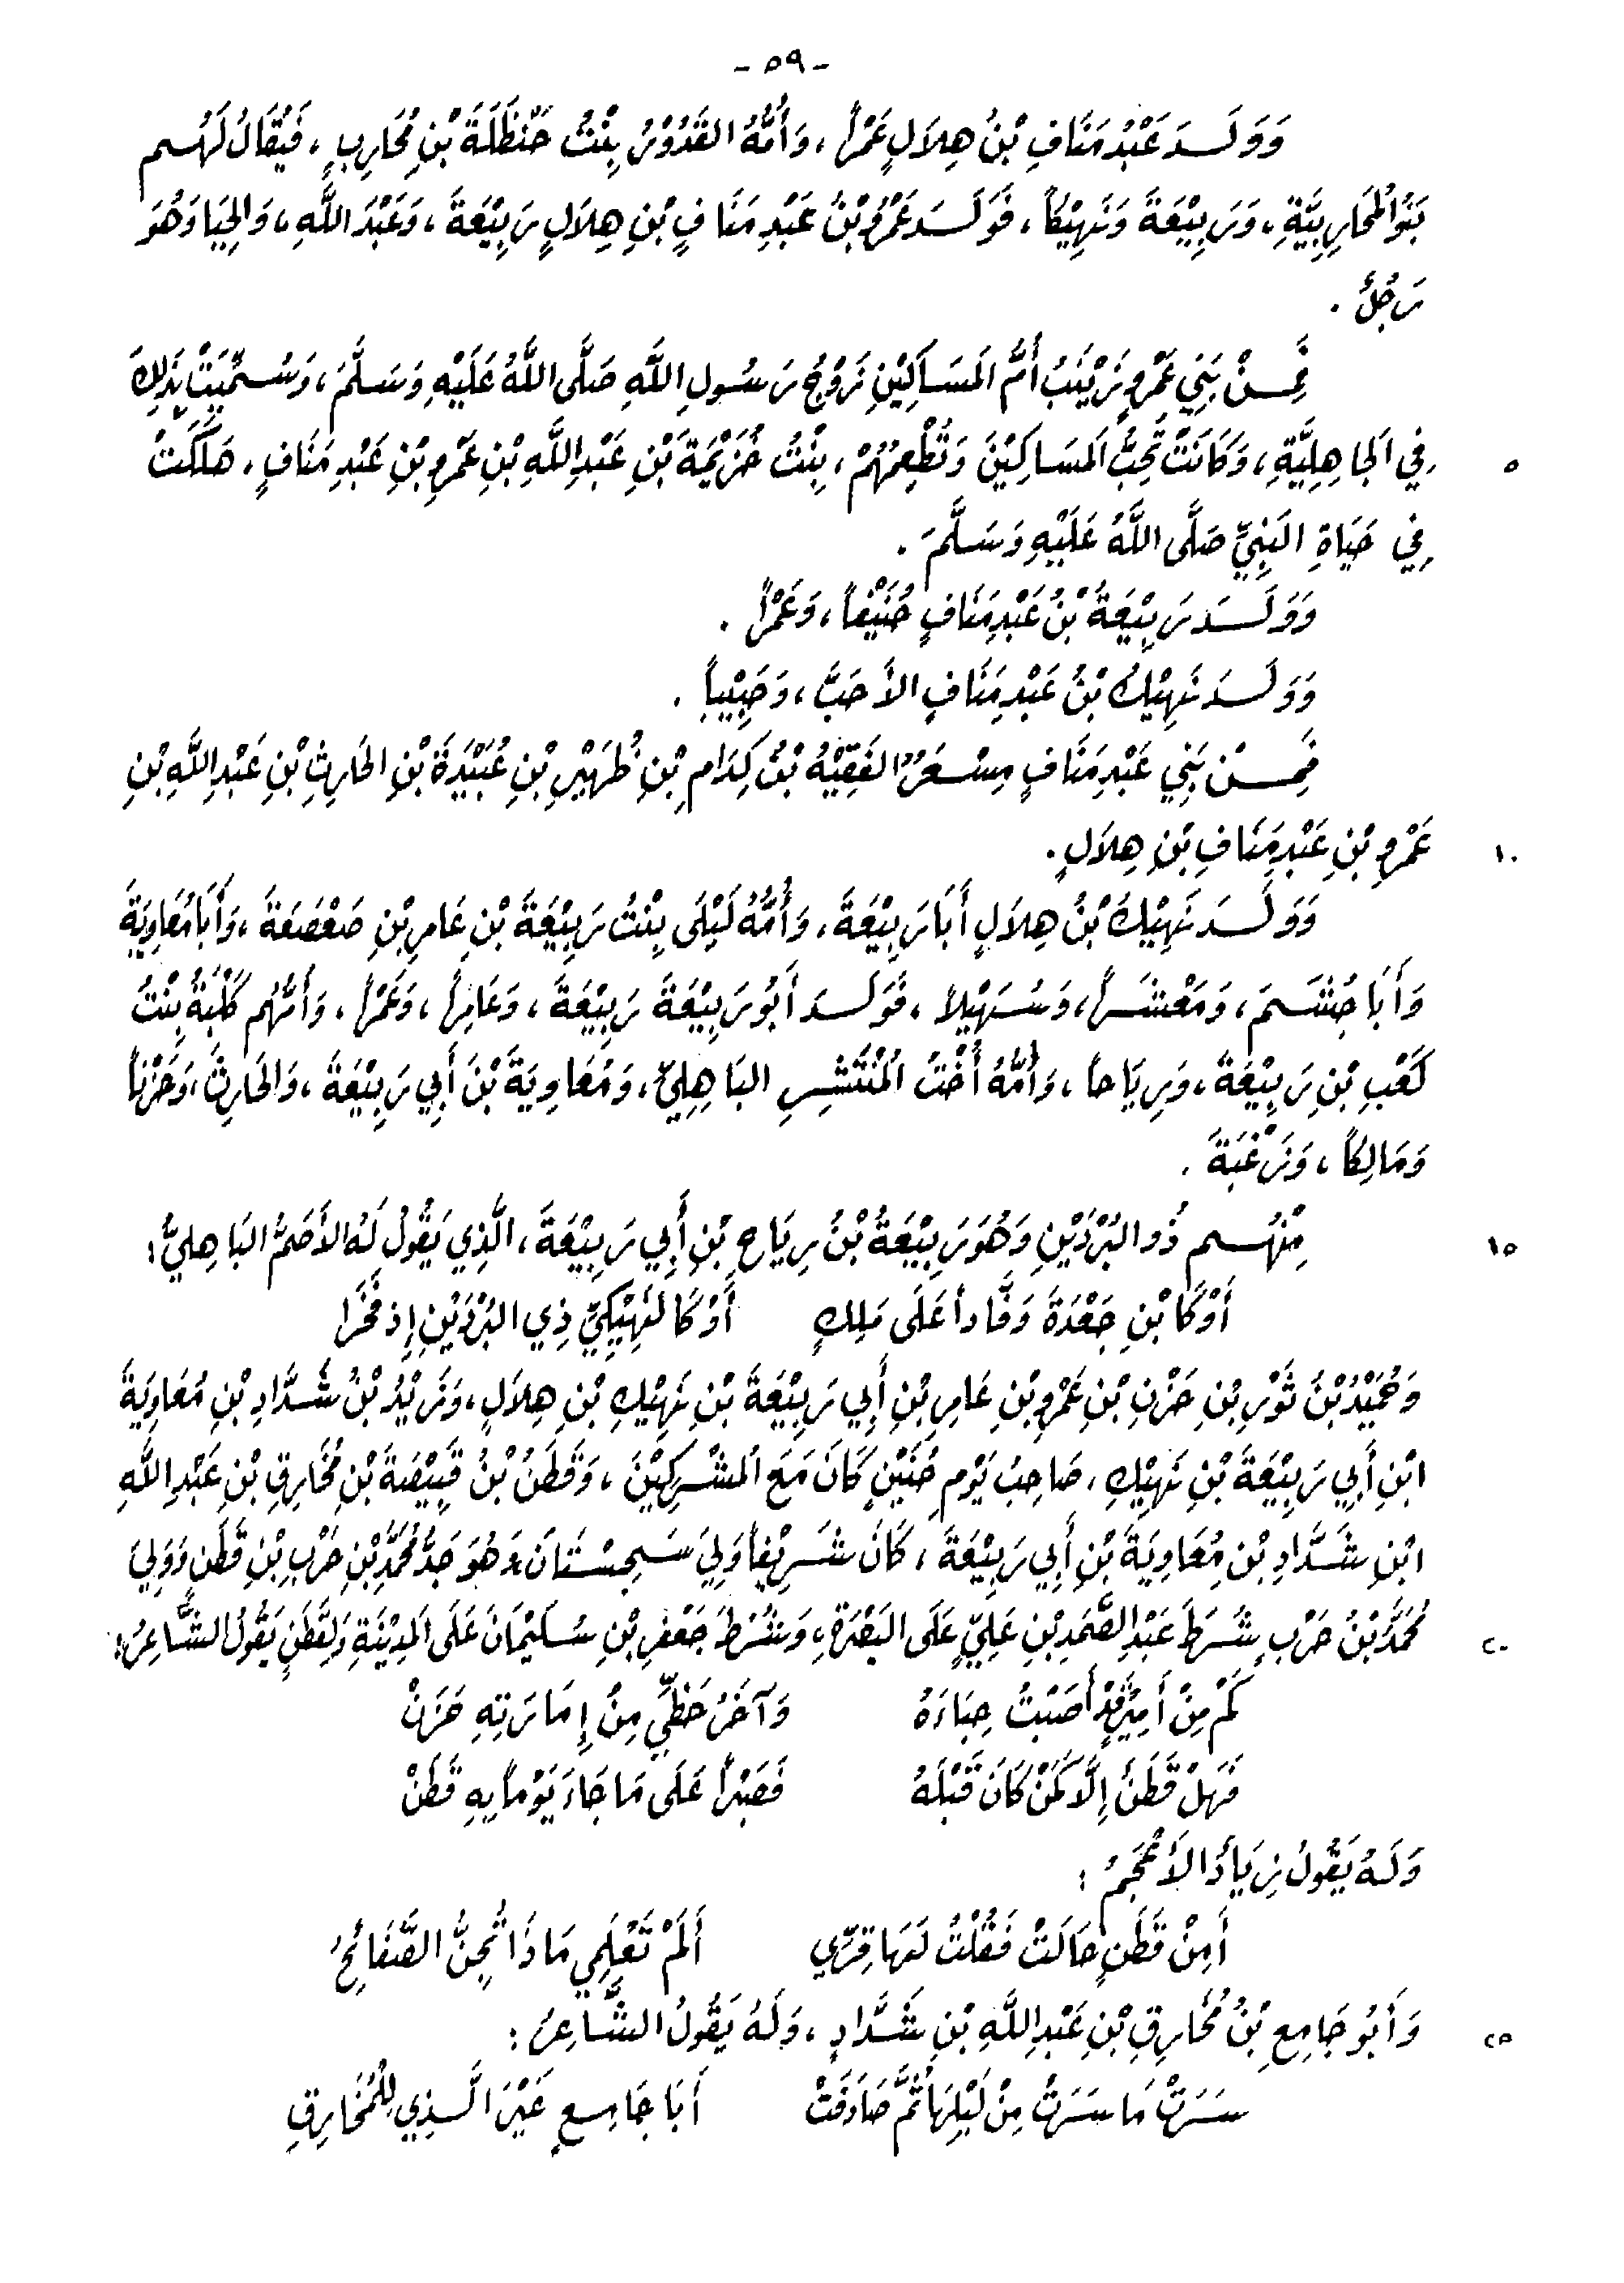 - ٥٩ -
وَوَلَدَ عَبْدُ مَنَافِ بْنُ هِلَالٍ عَمْراً، وَأُمُّهُ القَدُوْرُ بِنْتُ حَنْظَلَةَ بْنِ مُحَارِبٍ، فَيُقَالُ لَهُم
بَنُو الْمُحَارِبِيَّةِ، وَرَبِيْعَةَ وَنَهِيْكاً، فَوَلَدَ عَمْرُو بْنُ عَبْدِ مَنَافٍ بْنِ هِلَالٍ رَبِيْعَةَ، وَعَبْدَ اللَّهِ، وَالحَيَا وَهُوَ
رَجُلٌ.
فَمِنْ بَنِي عَمْرٍو زَيْنَبُ أُمُّ الْمَسَاكِيْنِ زَوْجُ رَسُولِ اللَّهِ صَلَّى اللَّهُ عَلَيْهِ وَسَلَّمَ، وَسُمِّيَتْ بِذَلِكَ
٥ فِي الْجَاهِلِيَّةِ، وَكَانَتْ تُحِبُّ الْمَسَاكِيْنَ وَتُطْعِمُهُمْ، بِنْتُ خُزَيْمَةَ بْنِ عَبْدِ اللَّهِ بْنِ عَمْرِو بْنِ عَبْدِ مَنَافٍ، هَلَكَتْ
فِي حَيَاةِ النَبِيِّ صَلَّى اللَّهُ عَلَيْهِ وَسَلَّمَ.
وَوَلَدَ رَبِيْعَةُ بْنُ عَبْدِ مَنَافٍ حُنَيْفاً، وَعَمْراً.
وَوَلَدَ نَهِيْكُ بْنُ عَبْدِ مَنَافٍ الأَحَبَّ، وَحَبِيْباً.
فَمِنْ بَنِي عَبْدِ مَنَافٍ مِسْعَرُ الفَقِيْهُ بْنُ كِدَامِ بْنِ ظُهَيْرِ بْنِ عُبَيْدَةَ بْنِ الحَارِثِ بْنِ عَبْدِ اللَّهِ بْنِ
١٠ عَمْرِو بْنِ عَبْدِ مَنَافِ بْنِ هِلَالٍ.
وَوَلَدَ نَهِيْكُ بْنُ هِلَالٍ أَبَا رَبِيْعَةَ، وَأُمُّهُ لَيْلَى بِنْتُ رَبِيْعَةَ بْنِ عَامِرِ بْنِ صَعْصَعَةَ، وَأَبَا مُعَاوِيَةَ
وَأَبَا جُشَمَ، وَمَعْشَراً، وَسُهَيْلاً، فَوَلَدَ أَبُو رَبِيْعَةَ رَبِيْعَةَ، وَعَامِراً، وَعَمْراً، وَأُمُّهُم كَلْبَةُ بِنْتُ
كَعْبِ بْنِ رَبِيْعَةَ، وَرِيَاحاً، وَأُمُّهُ أُخْتُ الْمُنْتَشِرِ البَاهِلِيِّ، وَمُعَاوِيَةَ بْنَ أَبِي رَبِيْعَةَ، وَالحَارِثَ، وَحَزْناً
وَمَالِكاً، وَزَغْبَةَ.
١٥ مِنْهُم ذُو البُرْدَيْنِ وَهُوَ رَبِيْعَةُ بْنُ رِيَاحِ بْنِ أَبِي رَبِيْعَةَ، الَّذِي يَقُولُ لَهُ الأَصَمُّ البَاهِلِيُّ:
أَوْ كَابْنِ جَعْدَةَ وَفَّاداً عَلَى مَلِكٍ أَوْ كَالنَهِيْكِيِّ ذِي البُرْدَيْنِ إِذْ فَخَرَا
وَحُمَيْدُ بْنُ ثَوْرِ بْنِ حَزْنِ بْنِ عَمْرِو بْنِ عَامِرِ بْنِ أَبِي رَبِيْعَةَ بْنِ نَهِيْكِ بْنِ هِلَالٍ، وَزَيْدُ بْنُ شَدَّادِ بْنِ مُعَاوِيَةَ
ابْنِ أَبِي رَبِيْعَةَ بْنِ نَهِيْكِ، صَاحِبُ يَوْمِ حُنَيْنٍ كَانَ مَعَ الْمُشْرِكِيْنَ، وَقَطَنُ بْنُ قَبِيْصَةَ بْنِ مُخَارِقِ بْنِ عَبْدِ اللَّهِ
ابْنِ شَدَّادِ بْنِ مُعَاوِيَةَ بْنِ أَبِي رَبِيْعَةَ، كَانَ شَرِيْفاً وَلِيَ سَجِسْتَانَ وَهُوَ جَدُّ مُحَمَّدِ بْنِ حَرْبِ بْنِ قَطَنٍ وَوَلِيَ
٢٠ مُحَمَّدُ بْنُ حَرْبٍ شُرَطَ عَبْدِ الصَّمَدِ بْنِ عَلِيٍّ عَلَى البَصْرَةِ، وَشُرَطَ جَعْفَرِ بْنِ سُلَيْمَانَ عَلَى الْمَدِيْنَةِ وَلِقَطَنٍ يَقُولُ الشَّاعِرُ:
كَمْ مِنْ أَمِيْرٍ قَدْ أَصَبْتُ حِبَاءَهُ وَآخَرُ حَظِّي مِنْ إِمَارَتِهِ حَزَنْ
فَهَلْ قَطَنٌ إِلَّا كَمَنْ كَانَ قَبْلَهُ فَصَبْراً عَلَى مَا جَاءَ يَوْماً بِهِ قَطَنْ
وَلَهُ يَقُولُ زِيَادُ الأَعْجَمُ:
أَمِنْ قَطَنٍ حَالَتْ فَقُلْتُ لَهَا قِرِّي أَلَمْ تَعْلَمِي مَاذَا تُجِنُّ الصَّفَائِحُ
٢٥ وَأَبُو جَامِعِ بْنُ مُخَارِقِ بْنِ عَبْدِ اللَّهِ بْنِ شَدَّادٍ، وَلَهُ يَقُولُ الشَّاعِرُ:
سَرَتْ مَا سَرَتْ مِنْ لَيْلِهَا ثُمَّ صَادَفَتْ أَبَا جَامِعٍ غَيْرَ الَّذِي لِلْمُخَارِقِ